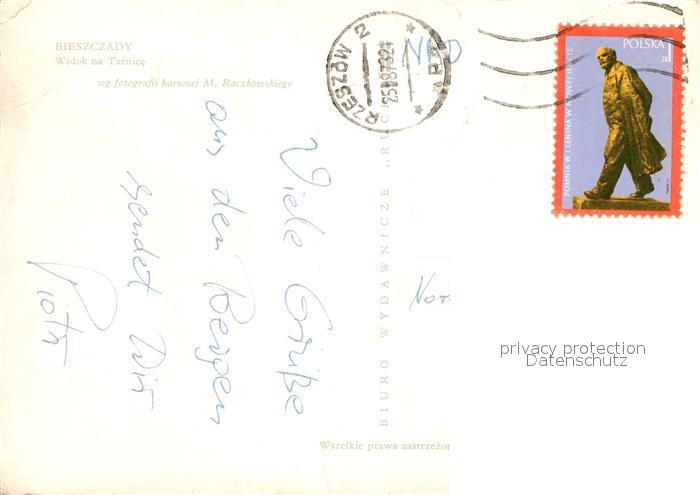 BIESZCZADY
Widok na Tarnicę
wg fotografii barwnej M. Raczkowskiego
RZESZÓW 2
25.0873-24
POLSKA
1 zł
POMNIK W.I. LENINA W NOWEJ HUCIE
Viele Grüße
aus den Bergen
sendet Wir
Piotr
BIURO WYDAWNICZE „RUCH
Nor
privacy protection
Datenschutz
Wszelkie prawa zastrzeżon